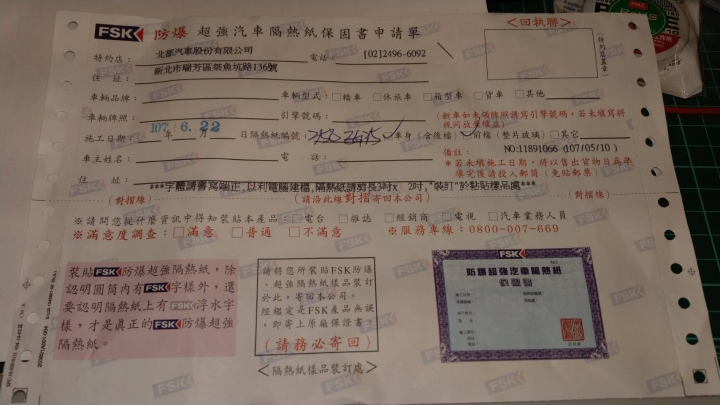 FSK 防爆 超強汽車隔熱紙保固書申請單
<回執聯>
特約店: 北都汽車股份有限公司 電話: [02]2496-6092
(特約店蓋章)
住 址: 新北市瑞芳區𫙮魚坑路136號
車輛品牌: 車輛型式: □轎車 □休旅車 □箱型車 □貨車 □其他
車輛牌照: 引擎號碼:
(新車如未領牌照請寫引擎號碼,若未填寫將視同放棄權益)
施工日期: 107年 6月 22日 隔熱紙編號: 車身(含後檔) 前檔(整片玻璃) □其它
車主姓名: 電 話:
備註: NO:11891066 (107/05/10)
※若未填施工日期,將以售出貨物日為準
填完後請投入郵筒(免貼郵票)
住 址:
***字體請書寫端正,以利電腦建檔,隔熱紙請剪長3吋x 2吋,"裝訂"於黏貼樣品處***
(對摺線) (請沿此線對摺寄回本公司) (對摺線)
※請問您從什麼資訊中得知裝貼本產品: □電台 □雜誌 □經銷商 □電視 □汽車業務人員
※滿意度調查: □滿意 □普通 □不滿意 ※服務專線: 0800-007-669
裝貼FSK防爆超強隔熱紙,除
認明圓筒內有FSK字樣外,還
要認明隔熱紙上有FSK浮水字
樣,才是真正的FSK防爆超強
隔熱紙。
請將您所裝貼FSK防爆
、超強隔熱紙樣品裝訂
於此,寄回本公司。
經鑑定是FSK產品無誤
,即寄上原廠保證書。
(請務必寄回)
<隔熱紙樣品裝訂處>
FSK
防爆超強汽車隔熱紙
保證書